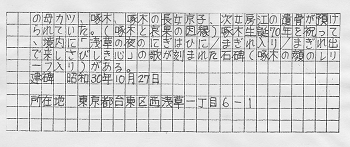 の母カツ、啄木、啄木の長女京子、次女房江の遺骨が預け
られていた。(啄木と哀果の因縁)啄木生誕70年を祝って
、境内に「浅草の夜のにぎはひに/まぎれ入/まぎれ出
で来しさびしき心」の歌が刻まれた石碑(啄木の顔のレリ
ーフ入り)がある。
建碑 昭和30年10月27日
所在地 東京都台東区西浅草一丁目6-1